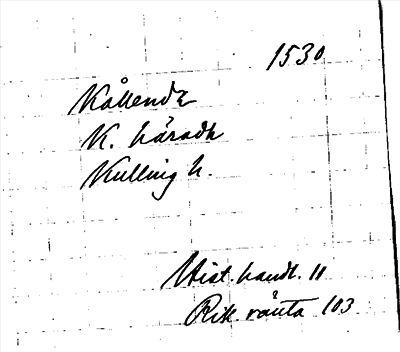 1530
Kållende
K. häradh
Kulling h.
Hist. handl. 11
Rik. ränta 103